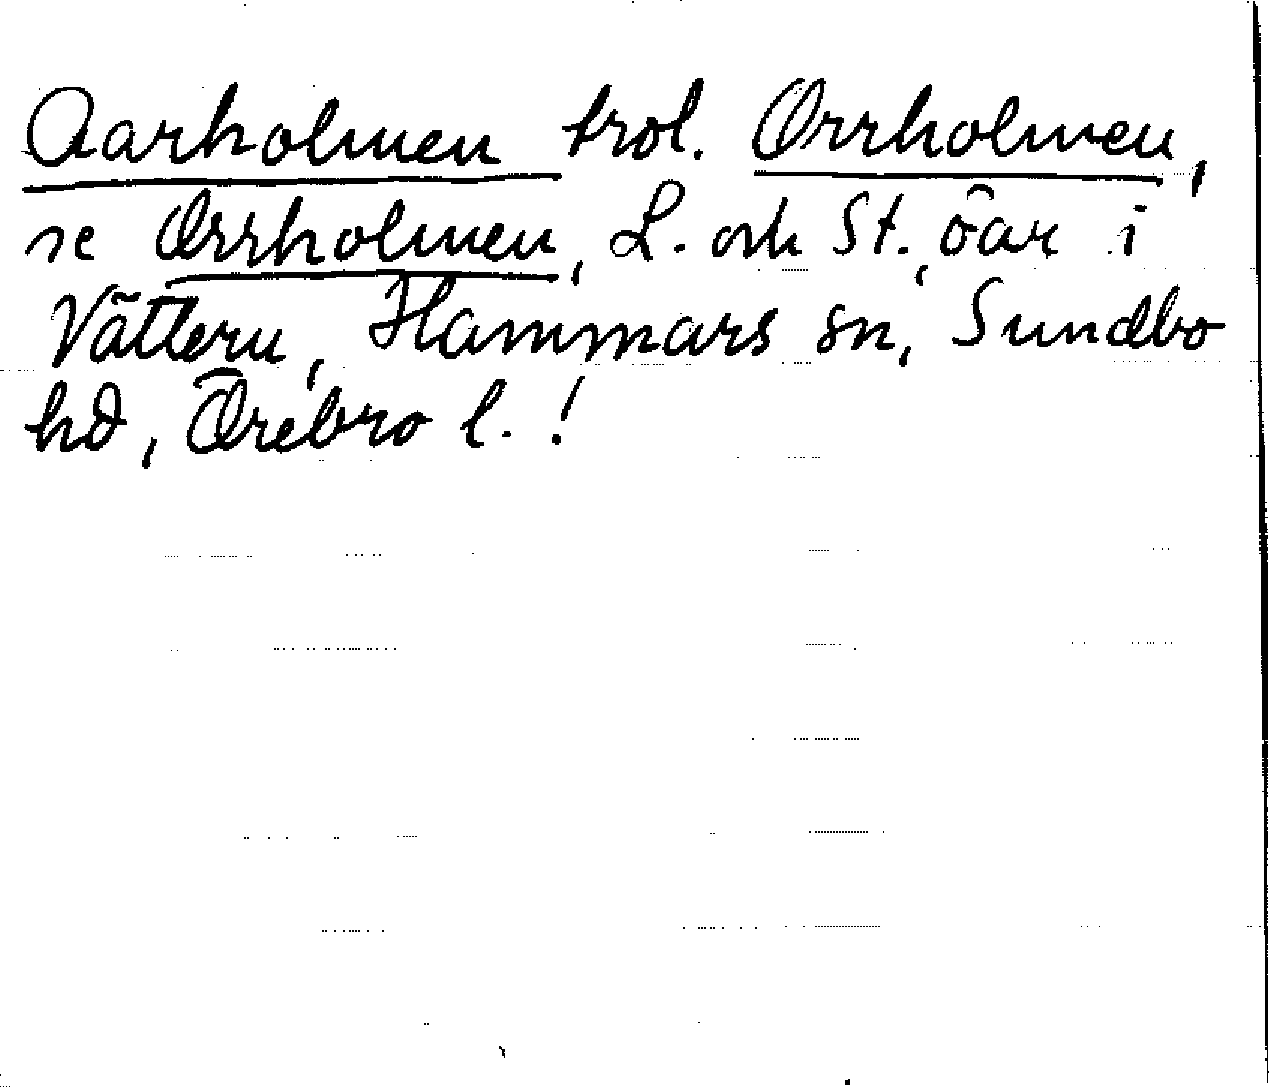 Aarholmen trol. Orrholmen,
se Orrholmen, L. och St., öar i
Vättern, Hammars sn, Sundbo
hd, Örebro l. !